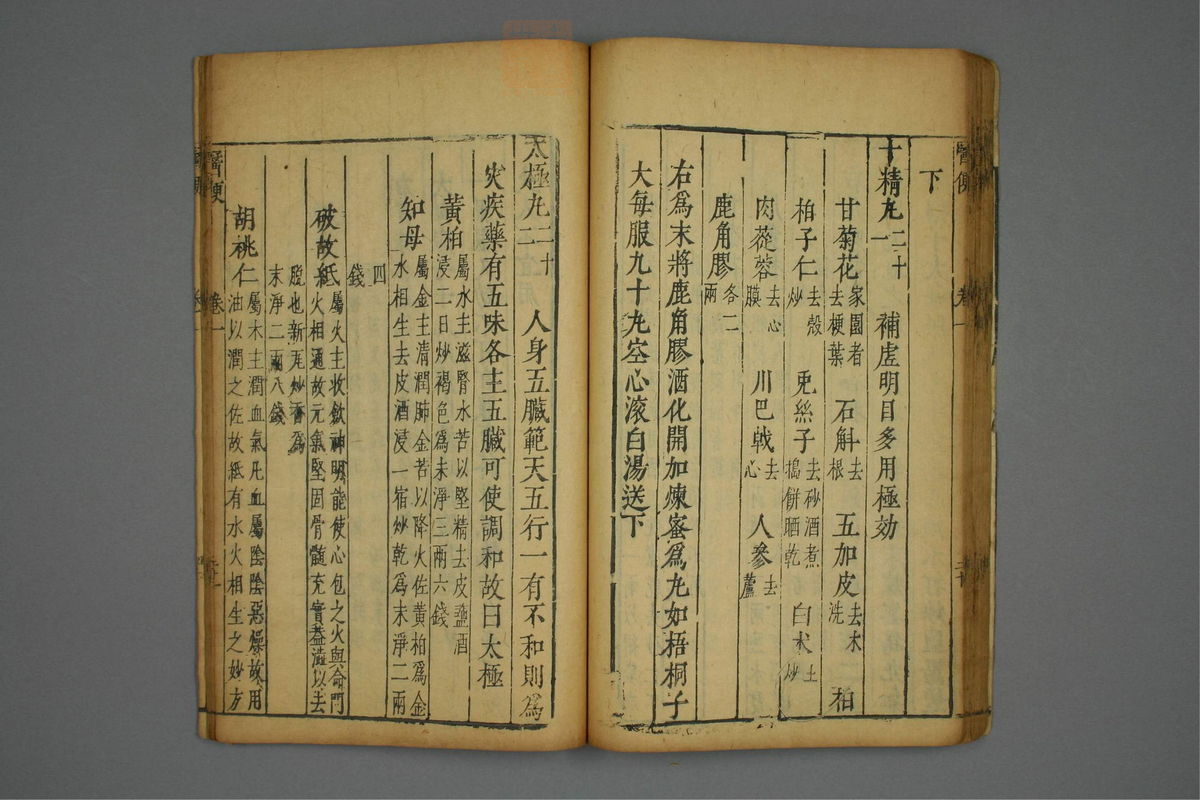 醫便 卷一 二十
下
十精丸 二十一 補虛明目多用極効
甘菊花 家園者去梗葉 石斛 去根 五加皮 去木洗 柏
柏子仁 去殼炒 兎絲子 去砂酒煮搗餅晒乾 白朮 土炒
肉蓯蓉 去心膜 川巴戟 去心 人參 去蘆
鹿角膠 各二兩
右爲末將鹿角膠酒化開加煉蜜爲丸如梧桐子
大每服九十丸空心滾白湯送下
太極丸 二十二 人身五臟範天五行一有不和則爲
灾疾藥有五味各主五臟可使調和故曰太極
黃柏 屬水主滋腎水苦以堅精去皮鹽酒浸二日炒褐色爲末淨三兩六錢
知母 屬金主清潤肺金苦以降火佐黃柏爲金水相生去皮酒浸一宿炒乾爲末淨二兩
四錢
破故紙 屬火主收斂神明能使心包之火與命門火相通故元氣堅固骨髓充實蓋澁以去
脫也新瓦炒香爲末淨二兩八錢
胡桃仁 屬木主潤血氣凡血屬陰陰惡燥故用油以潤之佐故紙有水火相生之妙方
醫便 卷一 二十一